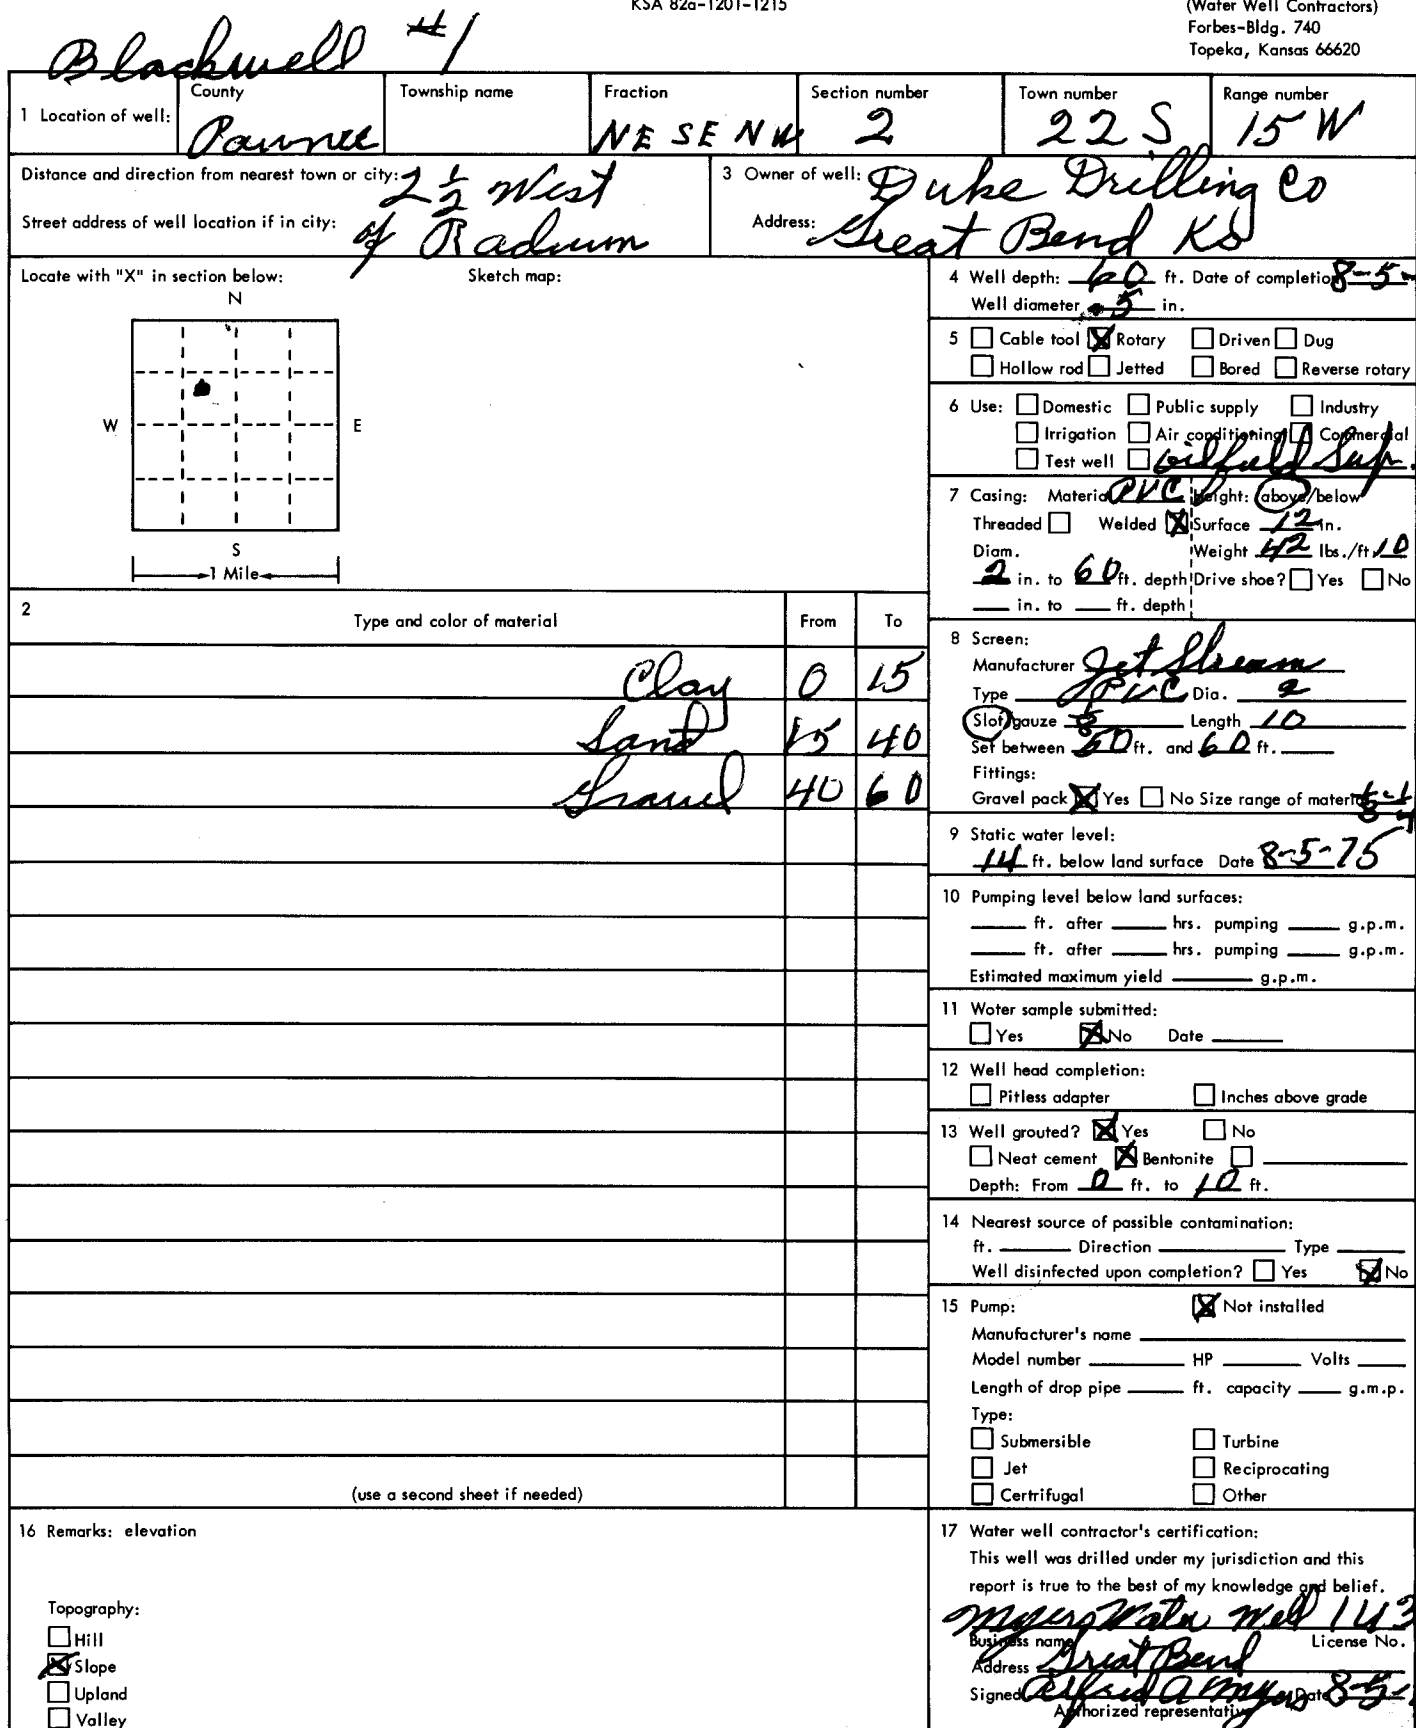 KSA 82a-1201-1215
(Water Well Contractors)
Forbes-Bldg. 740
Topeka, Kansas 66620
Blackwell #1
1 Location of well:
County
Pawnee
Township name
Fraction
NE SE NW
Section number
2
Town number
22 S
Range number
15 W
Distance and direction from nearest town or city: 2 1/2 West
Street address of well location if in city: of Radium
3 Owner of well: Duke Drilling Co
Address: Great Bend Ks
Locate with "X" in section below:
Sketch map:
N
W
E
S
1 Mile
4 Well depth: 60 ft. Date of completion 8-5-
Well diameter 5 in.
5 Cable tool X Rotary Driven Dug
Hollow rod Jetted Bored Reverse rotary
6 Use: Domestic Public supply Industry
Irrigation Air conditioning Commercial
Test well Oilfield Sup.
7 Casing: Material PVC Height: above/below
Threaded Welded X Surface 12 in.
Diam. Weight 42 lbs./ft 10
2 in. to 60 ft. depth Drive shoe? Yes No
in. to ft. depth
2
Type and color of material
From
To
Clay 0 15
Sand 15 40
Gravel 40 60
(use a second sheet if needed)
8 Screen:
Manufacturer Jet Stream
Type PVC Dia. 2
Slot/gauze 1/8 Length 10
Set between 50 ft. and 60 ft.
Fittings:
Gravel pack X Yes No Size range of material
9 Static water level:
14 ft. below land surface Date 8-5-75
10 Pumping level below land surfaces:
ft. after hrs. pumping g.p.m.
ft. after hrs. pumping g.p.m.
Estimated maximum yield g.p.m.
11 Water sample submitted:
Yes X No Date
12 Well head completion:
Pitless adapter Inches above grade
13 Well grouted? X Yes No
Neat cement X Bentonite
Depth: From 0 ft. to 10 ft.
14 Nearest source of possible contamination:
ft. Direction Type
Well disinfected upon completion? Yes X No
15 Pump: X Not installed
Manufacturer's name
Model number HP Volts
Length of drop pipe ft. capacity g.m.p.
Type:
Submersible Turbine
Jet Reciprocating
Certrifugal Other
16 Remarks: elevation
Topography:
Hill
X Slope
Upland
Valley
17 Water well contractor's certification:
This well was drilled under my jurisdiction and this
report is true to the best of my knowledge and belief.
Myers Water Well 143
Business name License No.
Address Great Bend
Signed Alfred A Myers Date 8-5-
Authorized representative